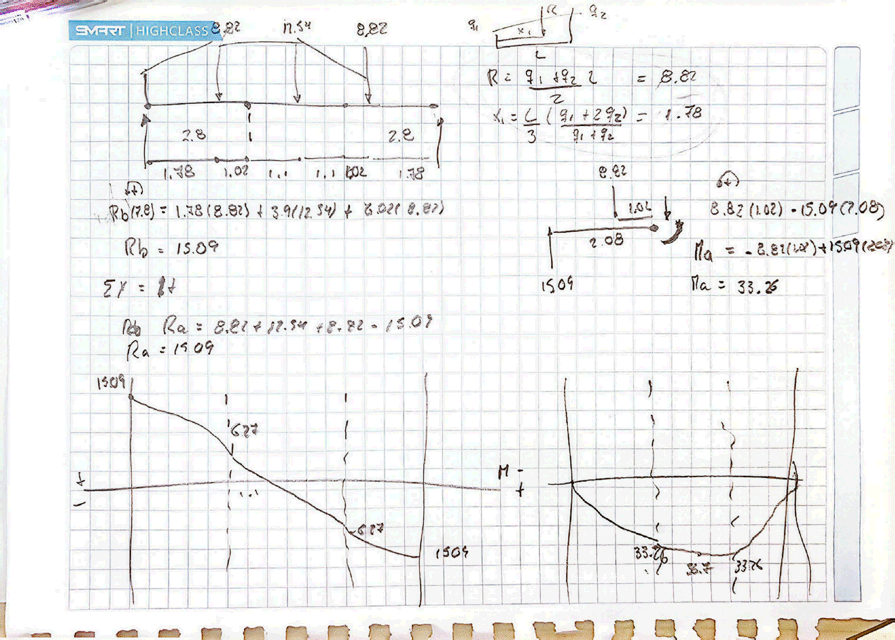 SMART | HIGHCLASS
8.82 12.54 8.82
2.8 2.8
1.78 1.02 1.1 1.1 1.02 1.78
Rb(7.8) = 1.78(8.82) + 3.9(12.54) + 6.02(8.82)
Rb = 15.09
ΣY = 
Ra = 8.82 + 12.54 + 8.82 - 15.09
Ra = 15.09
q1 R q2
x1
L
R = q1+q2/2 l = 8.82
x1 = L/3 (q1+2q2/q1+q2) = 1.78
8.82
1.02
2.08
1509
8.82(1.02) - 15.09(2.08)
Ma = -8.82(1.02)+1509(2.08)
Ma = 33.26
1509
6.27
+
-
-6.27
1509
M -
+
33.26 33.26